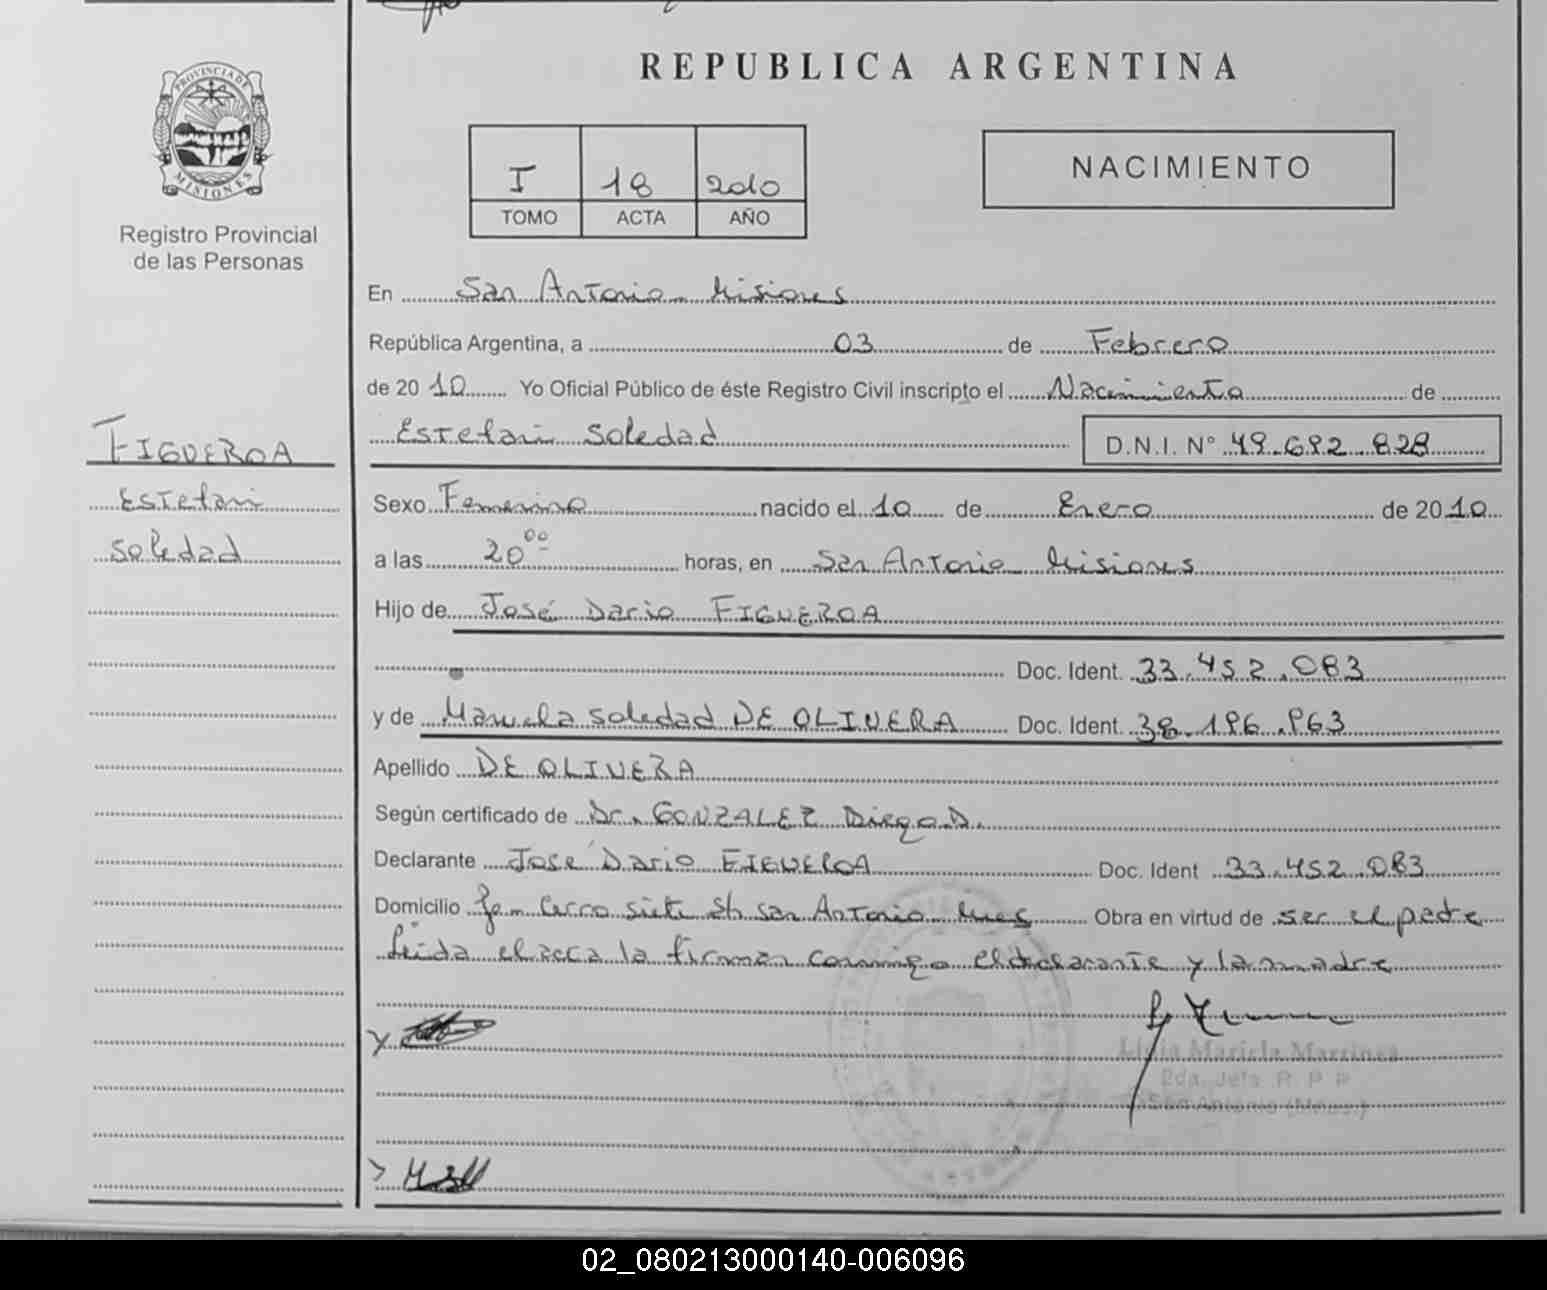 PROVINCIA DE
MISIONES
Registro Provincial
de las Personas
FIGUEROA
Estefani
Soledad
REPUBLICA ARGENTINA
I 18 2010
TOMO ACTA AÑO
NACIMIENTO
En San Antonio Misiones
República Argentina, a 03 de Febrero
de 2010 Yo Oficial Público de éste Registro Civil inscripto el Nacimiento de
Estefani Soledad D.N.I. N° 49.692.828
Sexo Femenino nacido el 10 de Enero de 2010
a las 20 00 horas, en San Antonio Misiones
Hijo de José Dario FIGUEROA
Doc. Ident. 33.452.083
y de Manuela Soledad DE OLIVERA Doc. Ident. 38.196.963
Apellido DE OLIVERA
Según certificado de Dr. GONZALEZ Diego D.
Declarante José Dario FIGUEROA Doc. Ident 33.452.083
Domicilio Cerro siete S/n San Antonio Mnes Obra en virtud de ser el padre
Leida el acta la firman conmigo el declarante y la madre
Ligia Mariela Martinez
2da. Jefa R. P. P.
San Antonio (Mnes.)
02_080213000140-006096